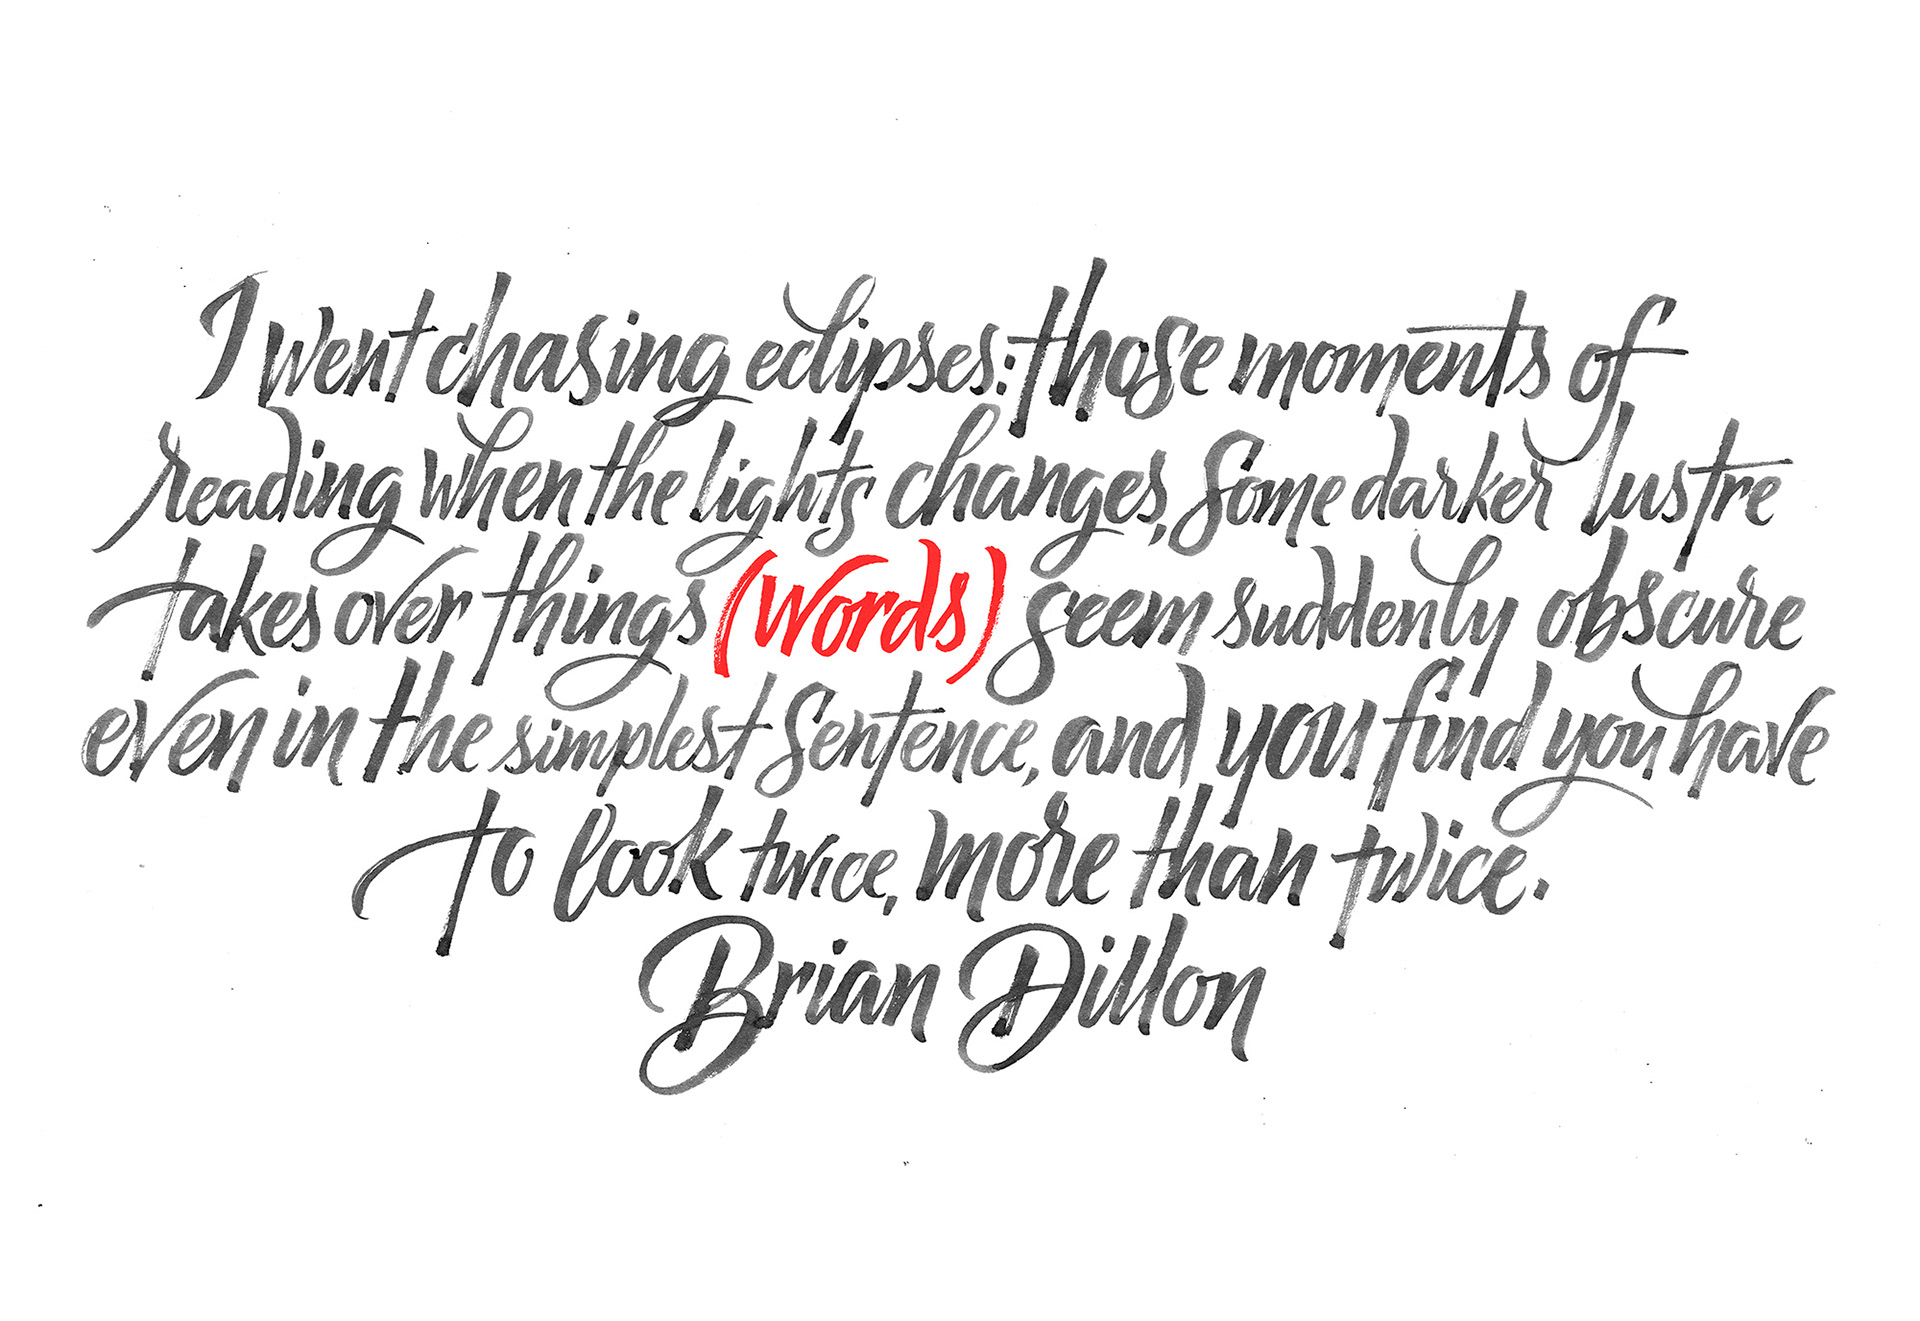 I went chasing eclipses: those moments of
reading when the lights changes, Some darker lustre
takes over things (words) seem suddenly obscure
even in the simplest Sentence, and you find you have
to look twice, more than twice.
Brian Dillon